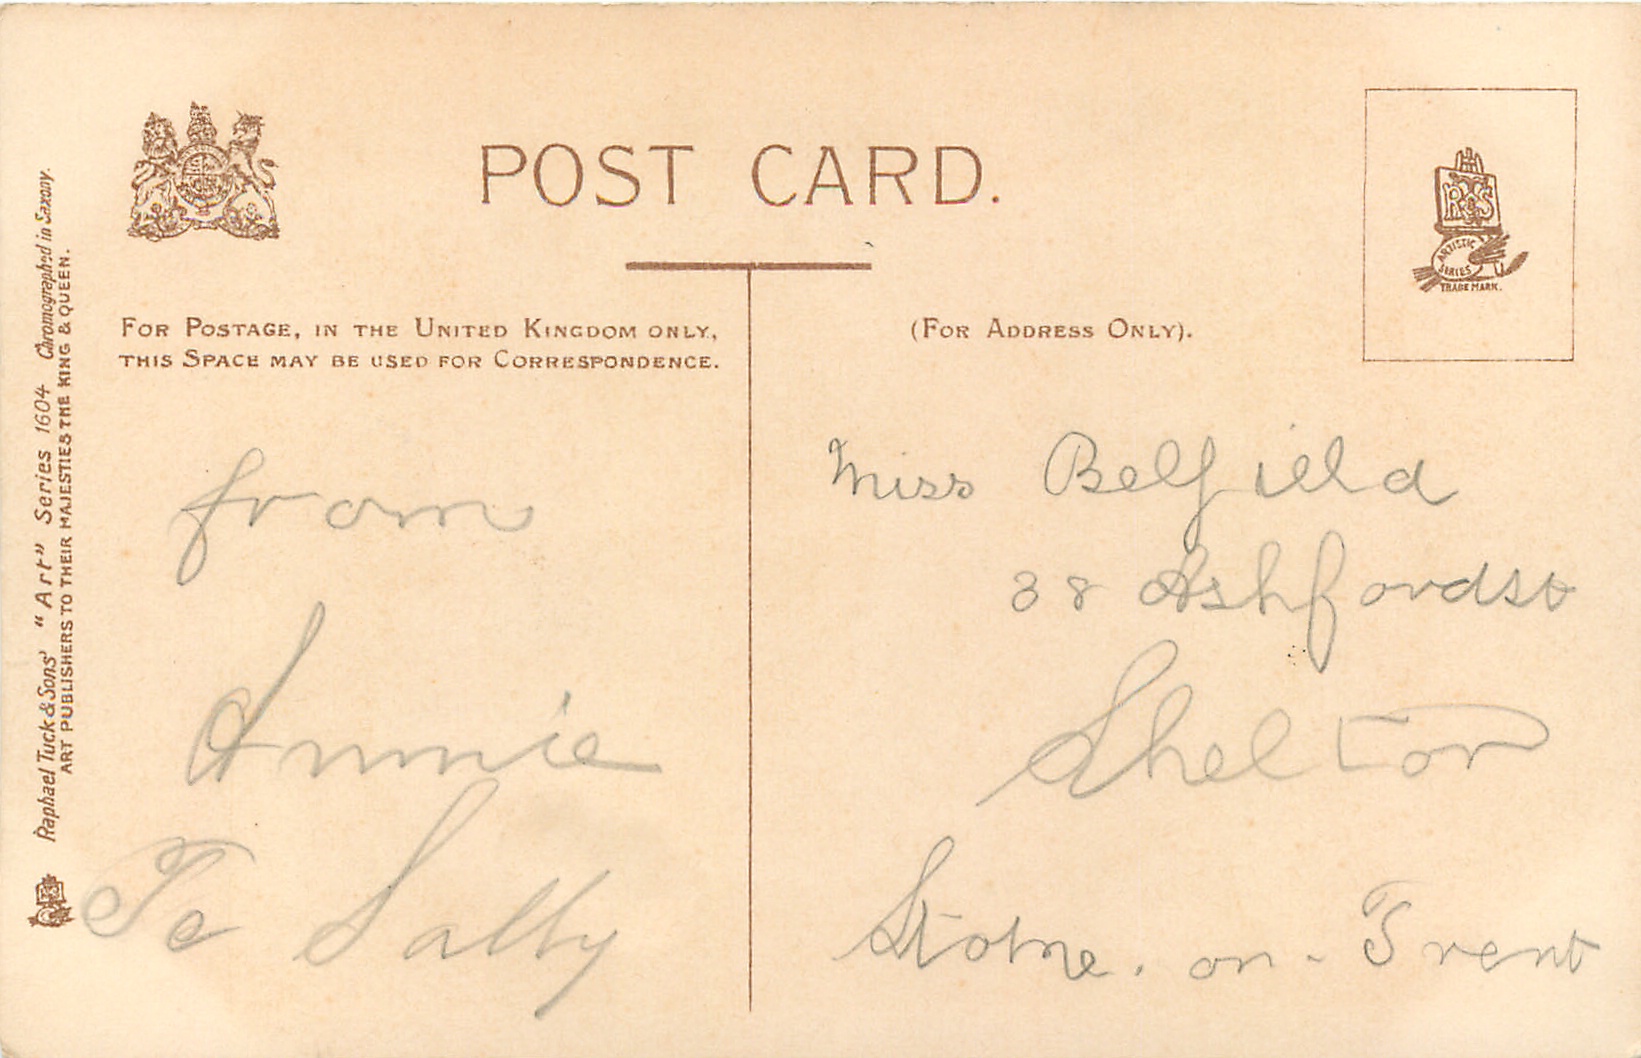 POST CARD.
R T & S
ARTISTIC
SERIES
TRADE MARK.
FOR POSTAGE, IN THE UNITED KINGDOM ONLY,
THIS SPACE MAY BE USED FOR CORRESPONDENCE.
(FOR ADDRESS ONLY).
Raphael Tuck & Sons' "Art" Series 1604 Chromographed in Saxony.
ART PUBLISHERS TO THEIR MAJESTIES THE KING & QUEEN.
from
Annie
To Sally
Miss Belfield
38 Ashford st
Shelton
Stoke. on. Trent